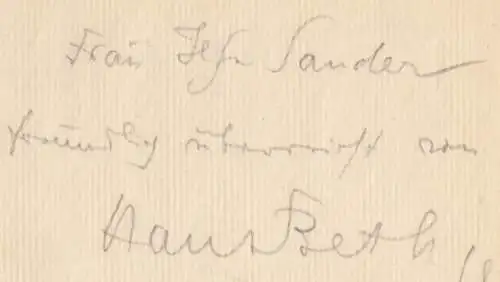 Frau Ilse Sander
freundlich überreicht von
Hans Beth